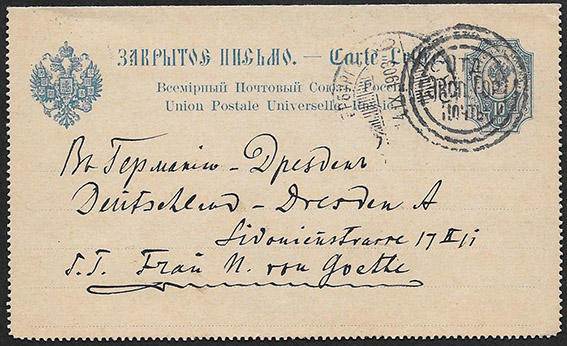 ЗАКРЫТОЕ ПИСЬМО. — Carte
Всемірный Почтовый Союзъ.
Union Postale Universelle.
10
Въ Германію – Dresden
Deutschland – Dresden A
Sidonienstrasse 17 II
Frau N. von Goethe